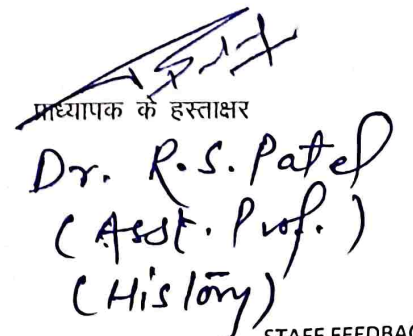 प्राध्यापक के हस्ताक्षर
Dr. R.S. Patel
(Asst. Prof.)
(History)
STAFF FEEDBAC